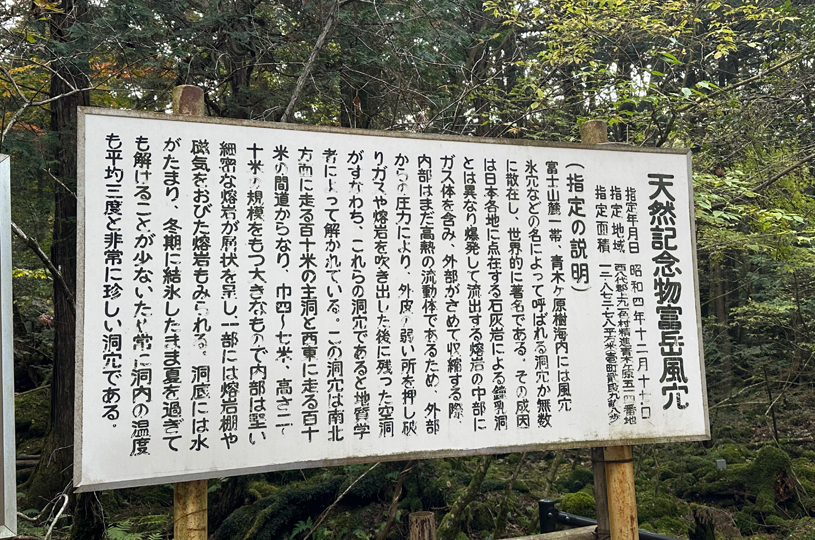 天然記念物富岳風穴
指定年月日 昭和四年十二月十七日
指定地域 西八代郡上九一色村精進青木ヶ原五一四番地
指定面積
(指定の説明)
富士山麓一帯、青木ヶ原樹海内には風穴
氷穴などの名によって呼ばれる洞穴が無数
に散在し、世界的に著名である。その成因
は日本各地に点在する石灰岩による鐘乳洞
とは異なり爆発して流出する熔岩の中部に
ガス体を含み、外部がさめて収縮する際
内部はまだ高熱の流動体であるため、外部
からの圧力により、外皮の弱い所を押し破
りガマや熔岩を吹き出した後に残った空洞
がすなわち、これらの洞穴であると地質学
者によって解かれている。この洞穴は南北
方面に走る百十米の主洞と西東に走る百十
米の間道からなり、巾四〜七米、高さ二〜
十米の規模をもつ大きなもので内部は堅い
細密な熔岩が層状を呈し一部には熔岩棚や
磁気をおびた熔岩もみられる。洞底には水
がたまり、冬期に結氷したまま夏を過ぎて
も解けることが少ないため常に洞内の温度
も平均三度と非常に珍しい洞穴である。